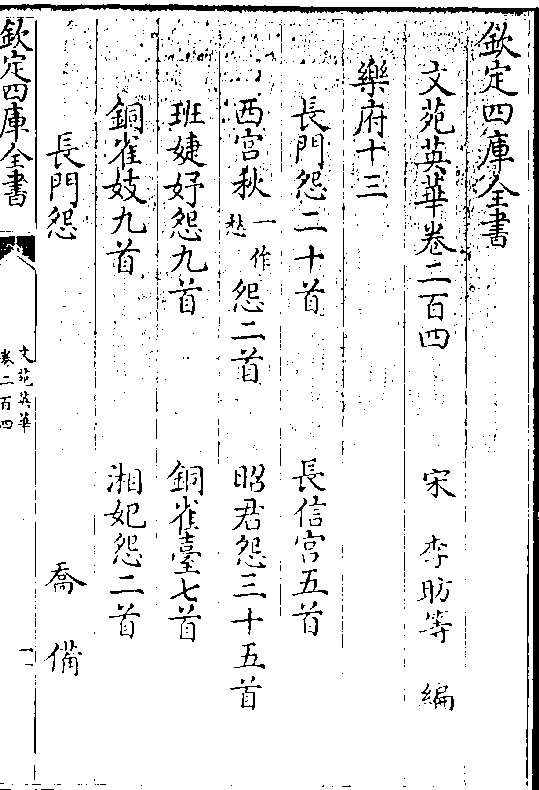 欽定四庫全書
文苑英華卷二百四
宋 李昉等 編
樂府十三
長門怨二十首 長信宮五首
西宮秋一作愁怨二首 昭君怨三十五首
班婕妤怨九首 銅雀臺七首
銅雀妓九首 湘妃怨二首
長門怨 喬備
欽定四庫全書
文苑英華
卷二百四
一